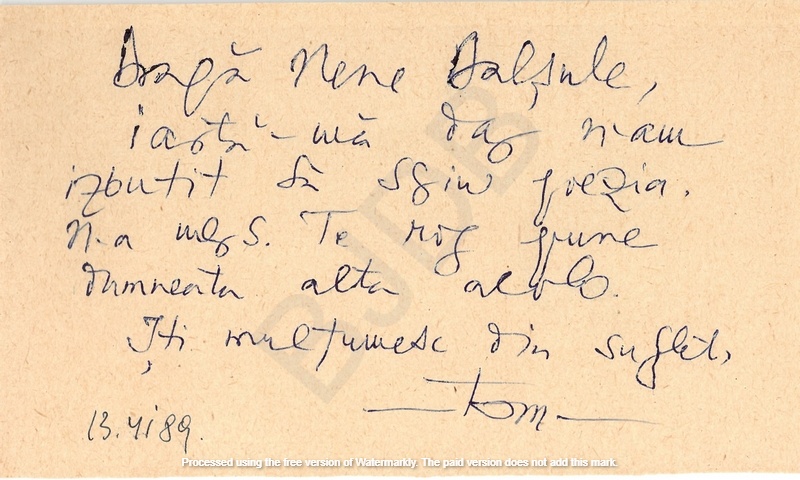 Dragă Nene Balșule,
iartă-mă dar n-am
izbutit să scriu poezia.
N-a mers. Te rog pune
dumneata alta acolo.
Îți mulțumesc din suflet,
Tom
13.VI 89.
BJDB
Processed using the free version of Watermarkly. The paid version does not add this mark.